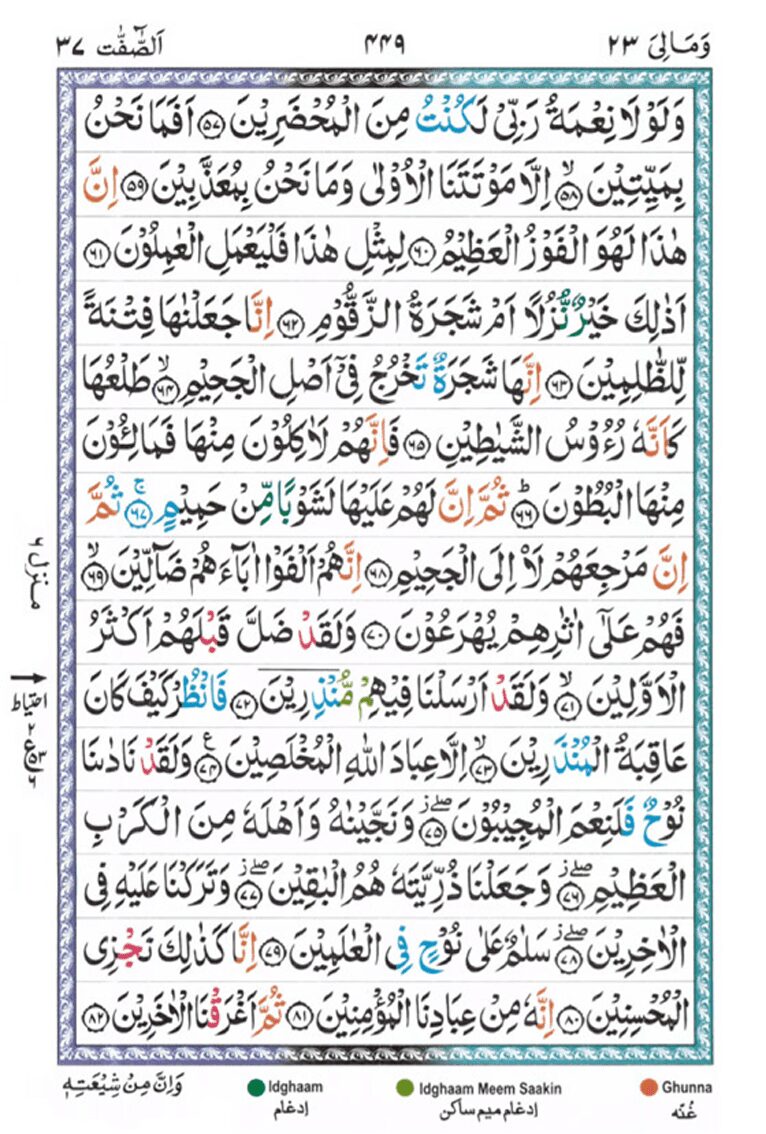 وَمَالِىَ ٢٣ ٤٤٩ اَلصّٰٓفّٰت ٣٧
وَلَوْلَا نِعْمَةُ رَبِّیْ لَكُنْتُ مِنَ الْمُحْضَرِیْنَ ٥٧ اَفَمَا نَحْنُ
بِمَیِّتِیْنَ ٥٨ۙ اِلَّا مَوْتَتَنَا الْاُوْلٰی وَمَا نَحْنُ بِمُعَذَّبِیْنَ ٥٩ اِنَّ
هٰذَا لَهُوَ الْفَوْزُ الْعَظِیْمُ ٦٠ لِمِثْلِ هٰذَا فَلْیَعْمَلِ الْعٰمِلُوْنَ ٦١
اَذٰلِكَ خَیْرٌ نُّزُلًا اَمْ شَجَرَةُ الزَّقُّوْمِ ٦٢ اِنَّا جَعَلْنٰهَا فِتْنَةً
لِّلظّٰلِمِیْنَ ٦٣ اِنَّهَا شَجَرَةٌ تَخْرُجُ فِیْۤ اَصْلِ الْجَحِیْمِ ٦٤ۙ طَلْعُهَا
كَاَنَّهٗ رُءُوْسُ الشَّیٰطِیْنِ ٦٥ فَاِنَّهُمْ لَاٰكِلُوْنَ مِنْهَا فَمَالِـُٔوْنَ
مِنْهَا الْبُطُوْنَ ٦٦ؕ ثُمَّ اِنَّ لَهُمْ عَلَیْهَا لَشَوْبًا مِّنْ حَمِیْمٍ ٦٧ۚ ثُمَّ
اِنَّ مَرْجِعَهُمْ لَا۠اِلَی الْجَحِیْمِ ٦٨ اِنَّهُمْ اَلْفَوْا اٰبَآءَهُمْ ضَآلِّیْنَ ٦٩ۙ
فَهُمْ عَلٰۤی اٰثٰرِهِمْ یُهْرَعُوْنَ ٧٠ وَلَقَدْ ضَلَّ قَبْلَهُمْ اَكْثَرُ
الْاَوَّلِیْنَ ٧١ۙ وَلَقَدْ اَرْسَلْنَا فِیْهِمْ مُّنْذِرِیْنَ ٧٢ فَانْظُرْ كَیْفَ كَانَ
عَاقِبَةُ الْمُنْذَرِیْنَ ٧٣ۙ اِلَّا عِبَادَ اللّٰهِ الْمُخْلَصِیْنَ ٧٤ع وَلَقَدْ نَادٰىنَا
نُوْحٌ فَلَنِعْمَ الْمُجِیْبُوْنَ ٧٥ وَنَجَّیْنٰهُ وَاَهْلَهٗ مِنَ الْكَرْبِ
الْعَظِیْمِ ٧٦ وَجَعَلْنَا ذُرِّیَّتَهٗ هُمُ الْبٰقِیْنَ ٧٧ وَتَرَكْنَا عَلَیْهِ فِی
الْاٰخِرِیْنَ ٧٨ سَلٰمٌ عَلٰی نُوْحٍ فِی الْعٰلَمِیْنَ ٧٩ اِنَّا كَذٰلِكَ نَجْزِی
الْمُحْسِنِیْنَ ٨٠ اِنَّهٗ مِنْ عِبَادِنَا الْمُؤْمِنِیْنَ ٨١ ثُمَّ اَغْرَقْنَا الْاٰخَرِیْنَ ٨٢
منزل ٦
احتیاط
وَاِنَّ مِنْ شِیْعَتِهٖ
Idghaam
Idghaam Meem Saakin
Ghunna
إدغام
إدغام میم ساکن
غُنّه